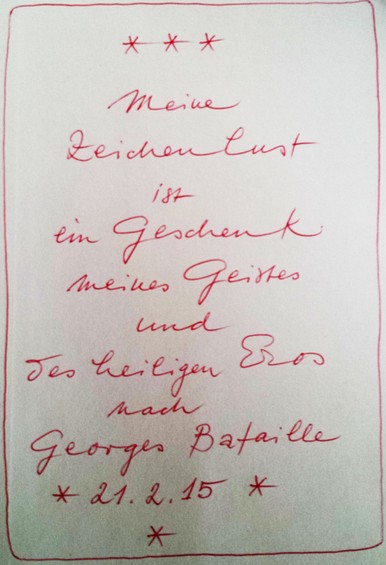 * * *
Meine
Zeichenlust
ist
ein Geschenk
meines Geistes
und
des heiligen Eros
nach
Georges Bataille
* 21.2.15 *
*